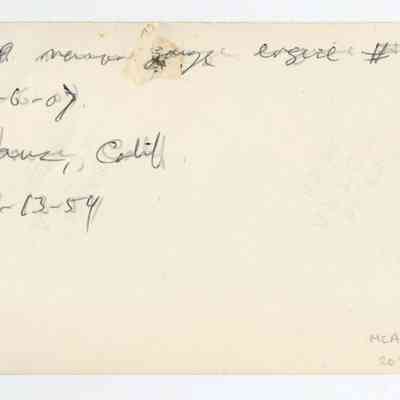 narrow gauge engine #
-6-07.
, Calif.
-13-54
MCA
20